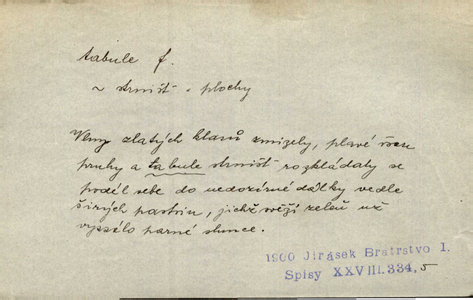 tabule f.
~ strnišť - plochy
Vlny zlatých klasů zmizely, plavé
pruhy a tabule strnišť rozkládaly se
podél sebe do nedozírné dálky vedle
širých pastvin, jichž svěží zeleň už
vypsálo parné slunce.
1900 Jirásek Bratrstvo 1.
Spisy XXVIII.334,5